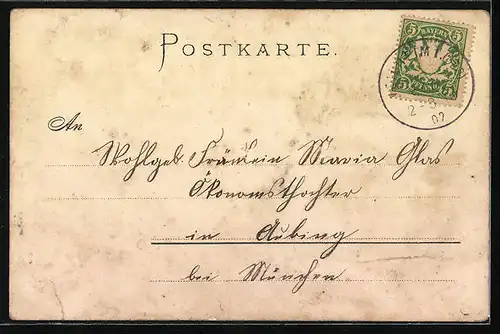 POSTKARTE.
5 BAYERN 5
5 PFENNIG 5
2-3
02
An
Wohlgeb. Fräulein Maria Glas
Ökonomsthochter
in Aubing
bei München